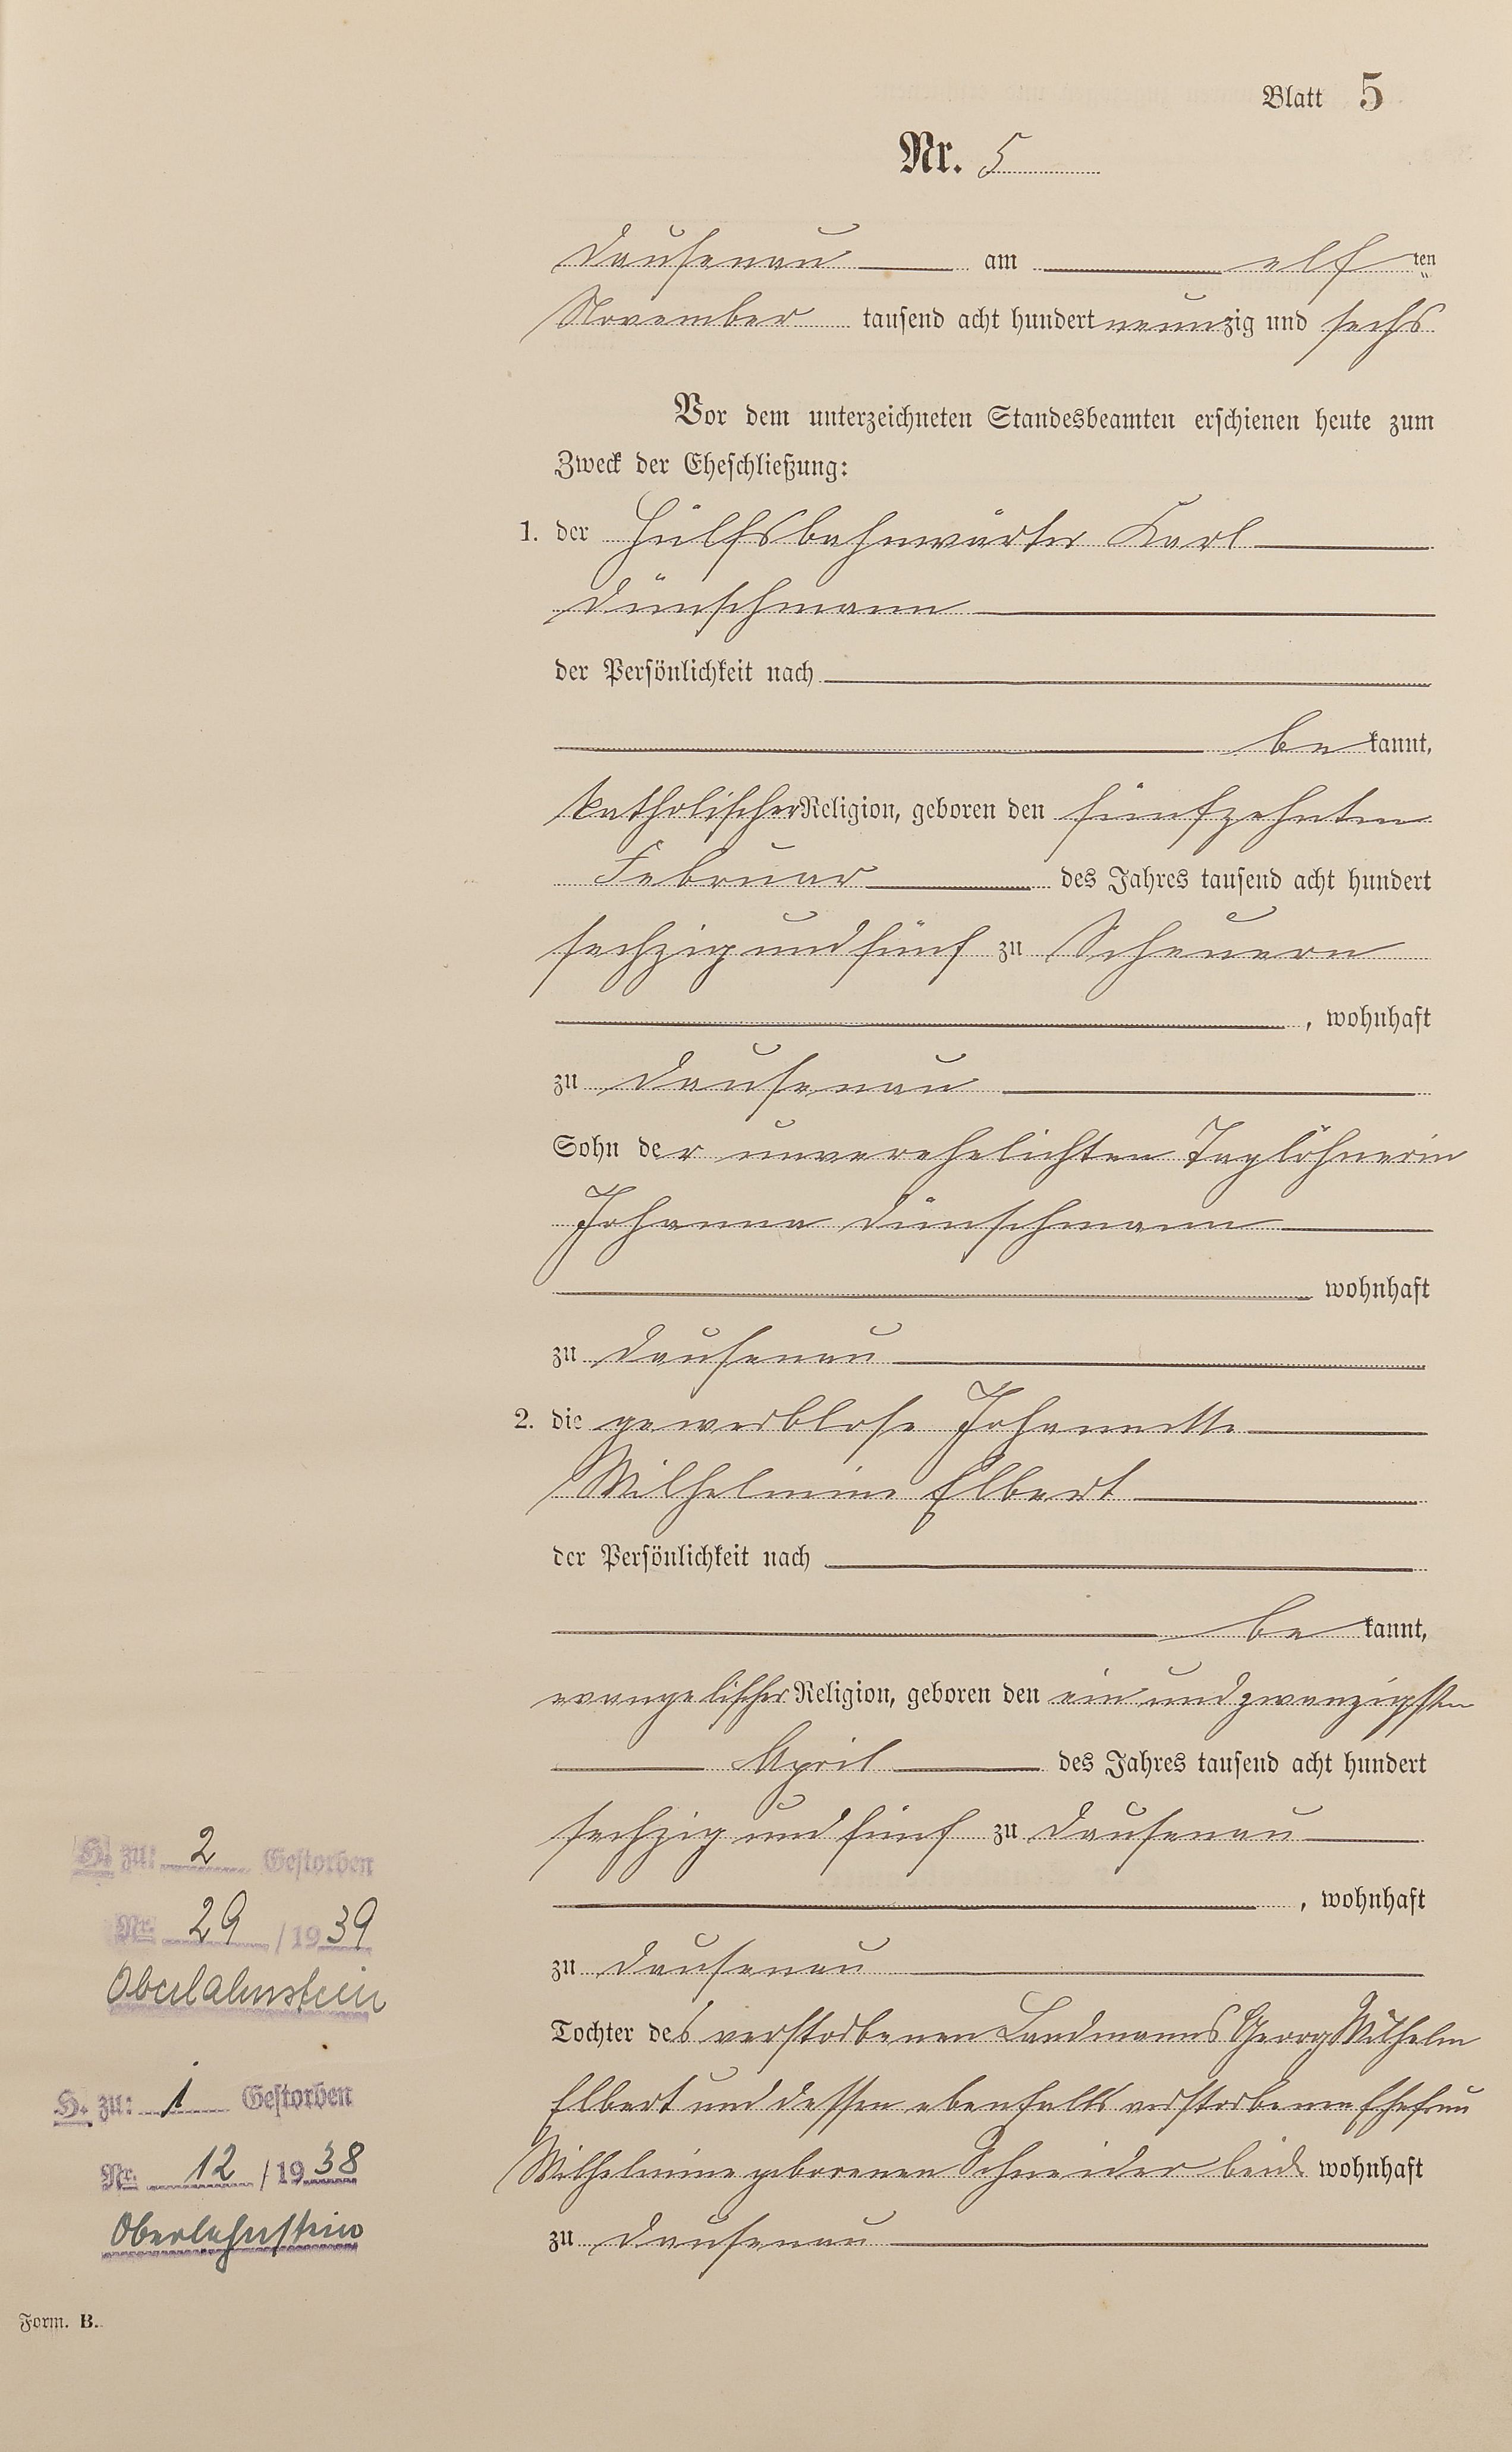 Blatt 5
Nr. 5
Dausenau am elf ten
November tausend acht hundert neunzig und sechs
Vor dem unterzeichneten Standesbeamten erschienen heute zum
Zweck der Eheschließung:
1. der Hülfsbahnwärter Karl
Dünschmann
der Persönlichkeit nach
be kannt,
katholischer Religion, geboren den fünfzehnten
Februar des Jahres tausend acht hundert
sechzig und fünf zu Scheuern
, wohnhaft
zu Dausenau
Sohn der unverehelichten Taglöhnerin
Johanna Dünschmann
wohnhaft
zu Dausenau
2. die gewerblose Johannette
Wilhelmine Elbert
der Persönlichkeit nach
be kannt,
evangelischer Religion, geboren den ein und zwanzigsten
April des Jahres tausend acht hundert
sechzig und fünf zu Dausenau
, wohnhaft
zu Dausenau
Tochter des verstorbenen Landmanns Georg Wilhelm
Elbert und dessen ebenfalls verstorbenen Ehefrau
Wilhelmine geborenen Schneider beide wohnhaft
zu Dausenau
H. zu: 2 Gestorben
Nr. 29 / 19 39
Oberlahnstein
H. zu: 1 Gestorben
Nr. 12 / 19 38
Oberlahnstein
Form. B.